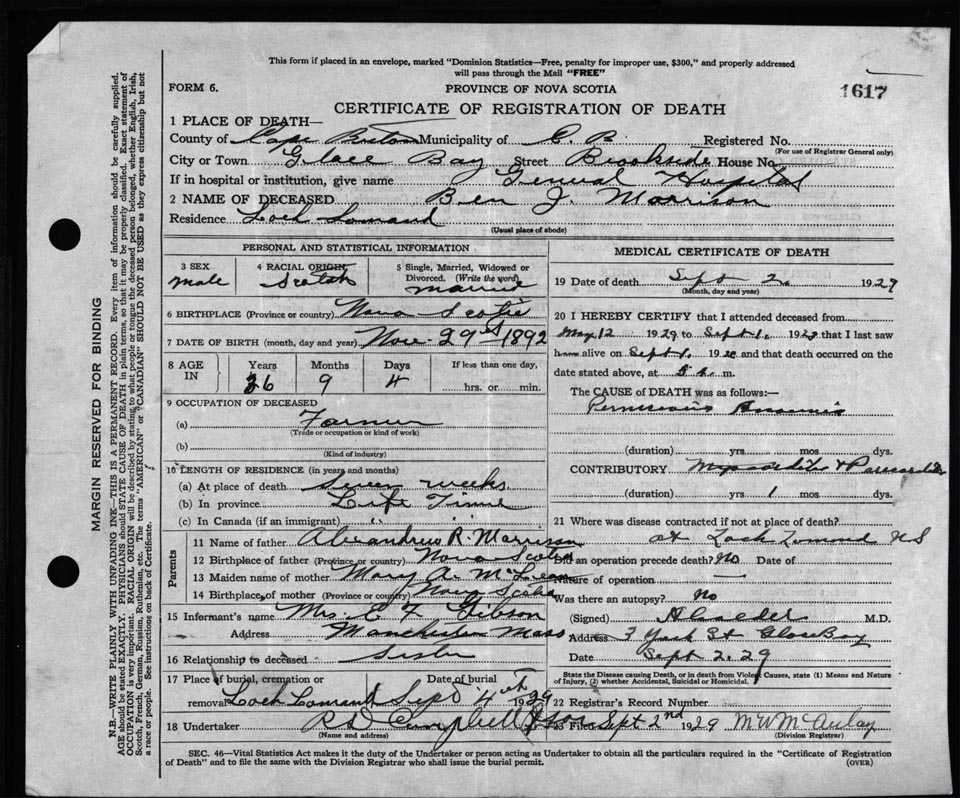 This form if placed in an envelope, marked "Dominion Statistics—Free, penalty for improper use, $300," and properly addressed
will pass through the Mail "FREE"
FORM 6.
PROVINCE OF NOVA SCOTIA
1617
CERTIFICATE OF REGISTRATION OF DEATH
1 PLACE OF DEATH—
County of Cape Breton Municipality of C. B. Registered No.
(For use of Registrar General only)
City or Town Glace Bay Street Brookside House No.
If in hospital or institution, give name General Hospital
2 NAME OF DECEASED Ben J. Morrison
Residence Loch Lomand
(Usual place of abode)
PERSONAL AND STATISTICAL INFORMATION
3 SEX
male
4 RACIAL ORIGIN
Scotch
5 Single, Married, Widowed or
Divorced. (Write the word)
6 BIRTHPLACE (Province or country) Nova Scotia
7 DATE OF BIRTH (month, day and year) Nov. 29 1892
8 AGE IN
Years Months Days If less than one day,
36 9 4 hrs. or min.
9 OCCUPATION OF DECEASED
(a) Farmer
(Trade or occupation or kind of work)
(b)
(Kind of industry)
10 LENGTH OF RESIDENCE (in years and months)
(a) At place of death Seven weeks
(b) In province Life Time
(c) In Canada (if an immigrant)
Parents
11 Name of father R. Morrison
12 Birthplace of father (Province or country) Nova Scotia
13 Maiden name of mother Mary A. McLean
14 Birthplace of mother (Province or country) Nova Scotia
15 Informant's name Mrs. E F Gibson
Address Manchester Mass
16 Relationship to deceased Sister
17 Place of burial, cremation or Date of burial
removal Loch Lomand Sept 4th 1929
18 Undertaker Campbell & Sons
(Name and address)
MEDICAL CERTIFICATE OF DEATH
19 Date of death Sept 2. 1929
(Month, day and year)
20 I HEREBY CERTIFY that I attended deceased from
May 12 1929 to Sept 1. 1929 that I last saw
him alive on Sept 1. 1929 and that death occurred on
date stated above, at 5 m.
The CAUSE OF DEATH was as follows:—
Pernicious Anaemia
(duration) yrs. mos. dys.
CONTRIBUTORY Myocarditis &
(duration) yrs 1 mos dys.
21 Where was disease contracted if not at place of death?
at Loch Lomond NS
Did an operation precede death? No Date of
Nature of operation —
Was there an autopsy? No
(Signed) M.D.
Address 3 York St Glace Bay
Date Sept 2. 29
State the Disease causing Death, or in death from Violent Causes, state (1) Means and Nature
of Injury, (2) whether Accidental, Suicidal or Homicidal.
22 Registrar's Record Number
23 Filed Sept 2nd 1929 M W McAulay
(Division Registrar)
SEC. 46—Vital Statistics Act makes it the duty of the Undertaker or person acting as Undertaker to obtain all the particulars required in the "Certificate of Registration
of Death" and to file the same with the Division Registrar who shall issue the burial permit.
(OVER)
MARGIN RESERVED FOR BINDING
N.B.—WRITE PLAINLY WITH UNFADING INK—THIS IS A PERMANENT RECORD. Every item of information should be carefully supplied.
AGE should be stated EXACTLY. PHYSICIANS should STATE CAUSE OF DEATH in plain terms, so that it may be properly classified. Exact statement of
OCCUPATION is very important. RACIAL ORIGIN will be described by stating to what people or tongue the deceased person belonged, whether English, Irish,
Scotch, French, German, Russian, Ruthenian, etc. The terms "AMERICAN" or "CANADIAN" SHOULD NOT BE USED as they express citizenship but not
a race or people. See instructions on back of Certificate.